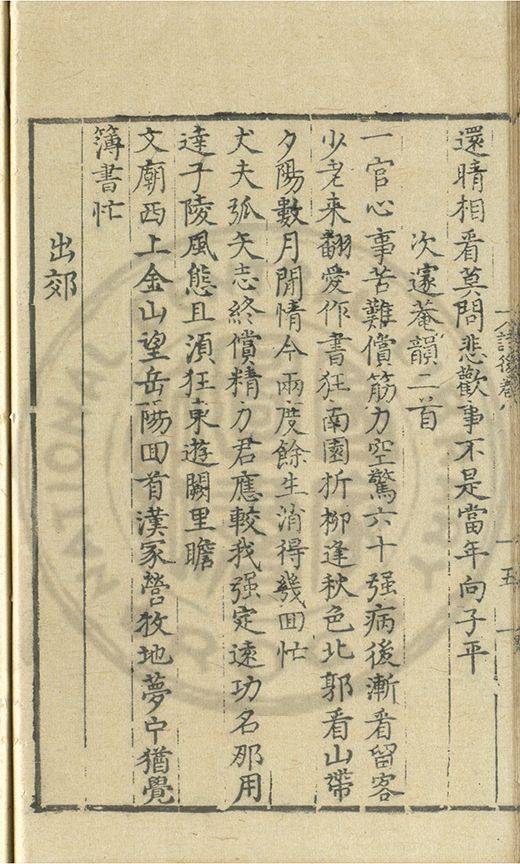 還晴相看莫問悲歡事不是當年向子平
次邃菴韻二首
一官心事苦難償筋力空驚六十强病後漸看留客
少老來翻愛作書狂南園折柳逢秋色北郭看山帶
夕陽數月閒情今兩度餘生消得幾囬忙
丈夫弧矢志終償精力君應較我强定遠功名那用
達子陵風態且湏狂東遊闕里瞻
文廟西上金山望岳陽囬首漢家營牧地夢中猶覺
簿書忙
出郊
詩後卷八
五